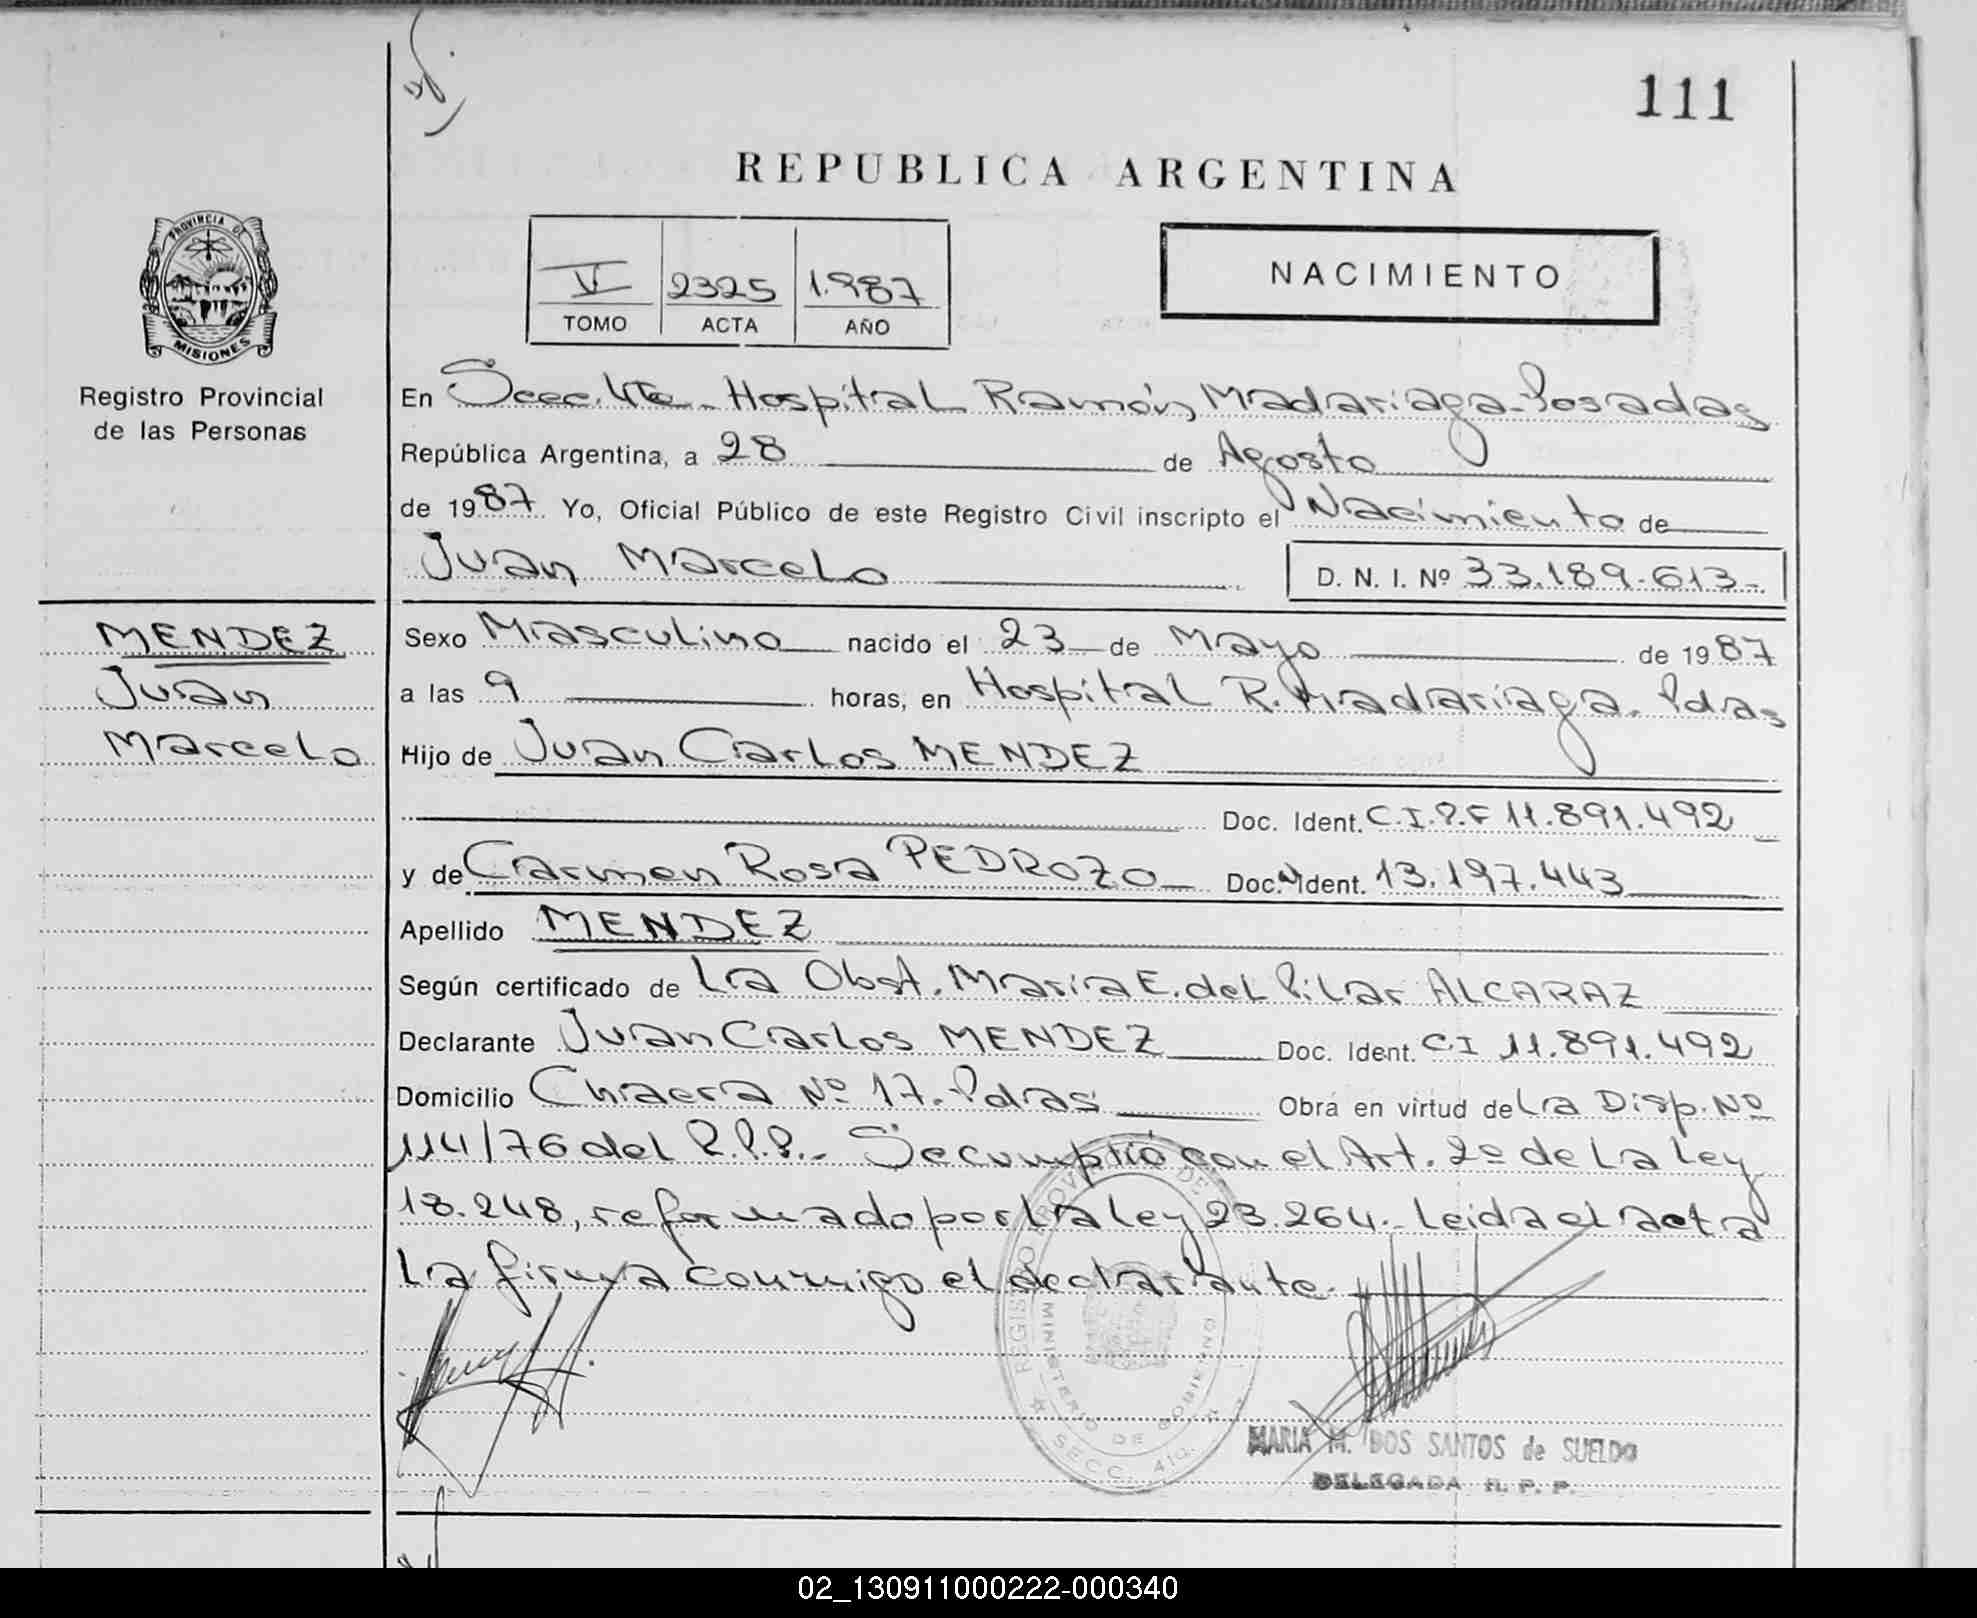 111
REPUBLICA ARGENTINA
PROVINCIA DE
MISIONES
Registro Provincial
de las Personas
VI 2325 1.987
TOMO ACTA AÑO
NACIMIENTO
En Secc. 4ta. Hospital Ramón Madariaga - Posadas
República Argentina, a 28 de Agosto
de 1987 Yo, Oficial Público de este Registro Civil inscripto el Nacimiento de
Juan Marcelo D. N. I. Nº 33.189.613-
MENDEZ
Juan
Marcelo
Sexo Masculino nacido el 23 de Mayo de 1987
a las 9 horas, en Hospital R. Madariaga. Pdas
Hijo de Juan Carlos MENDEZ
Doc. Ident. C.I.P.F 11.891.492
y de Carmen Rosa PEDROZO Doc. Ident. 13.197.443
Apellido MENDEZ
Según certificado de La Obst. Maria E. del Pilar ALCARAZ
Declarante Juan Carlos MENDEZ Doc. Ident. CI 11.891.492
Domicilio Chacra Nº 17. Pdas Obra en virtud de La Disp. Nº
114/76 del R.P.P.- Se cumplió con el Art. 2º de La Ley
18.248, reformado por La Ley 23.264.- Leida el acta
La firma conmigo el declarante.
REGISTRO PROVINCIAL DE
MINISTERIO DE GOBIERNO
SECC. 4ta.
MARIA M. DOS SANTOS de SUELDO
DELEGADA R. P. P.
02_130911000222-000340